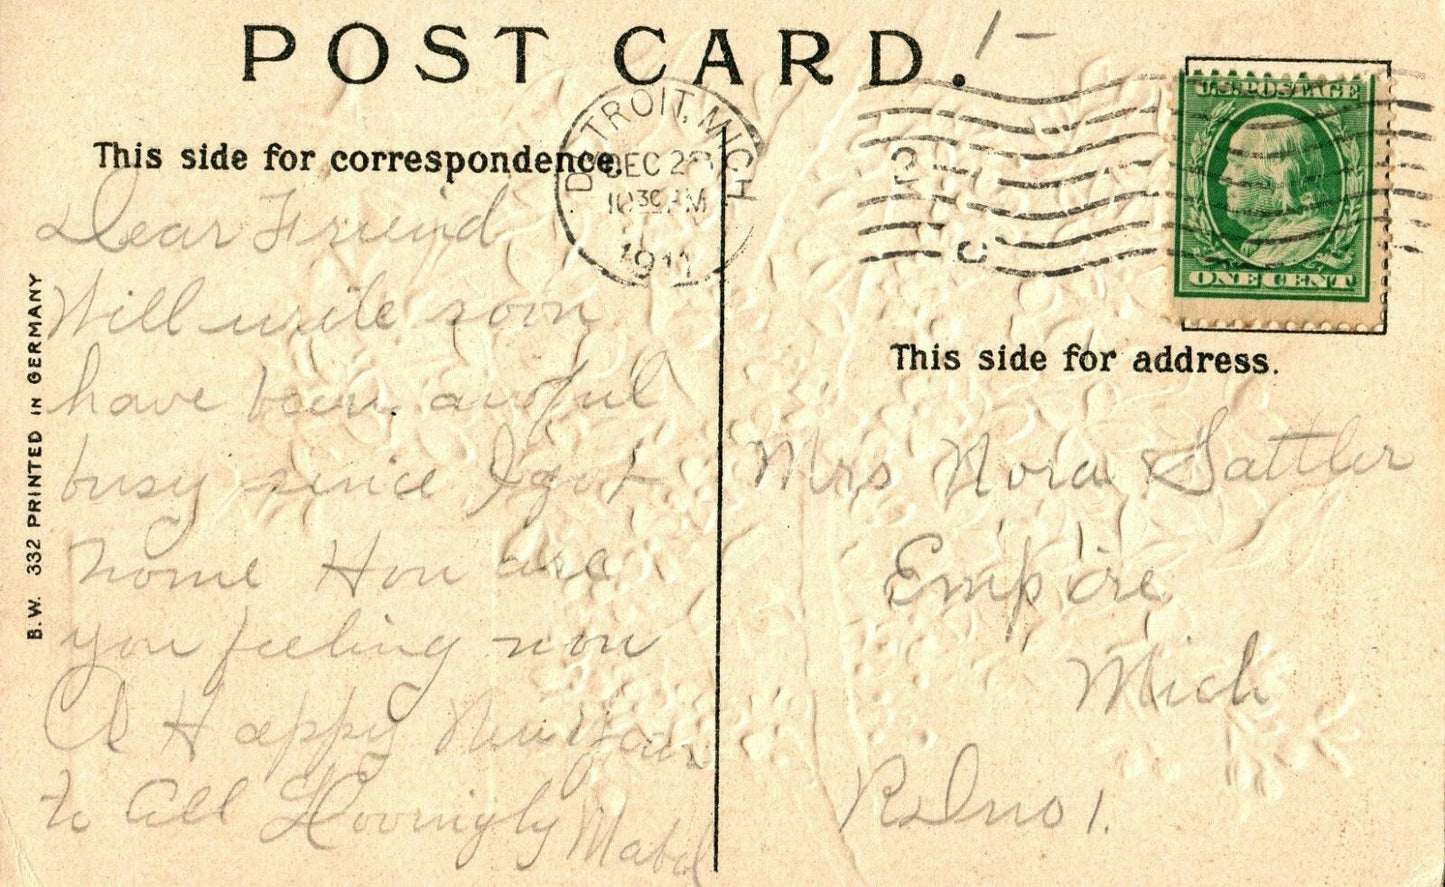 POST CARD.
1-
This side for correspondence.
DETROIT, MICH
DEC 28
10 30 AM
1911
U.S. POSTAGE
ONE CENT
Dear Friend
Will write soon
have been awful
busy since I got
home How are
you feeling now
A Happy New Year
to all Lovingly Mabel
B.W. 332 PRINTED IN GERMANY
This side for address.
Mrs Nora Sattler
Empire
Mich
no 1.